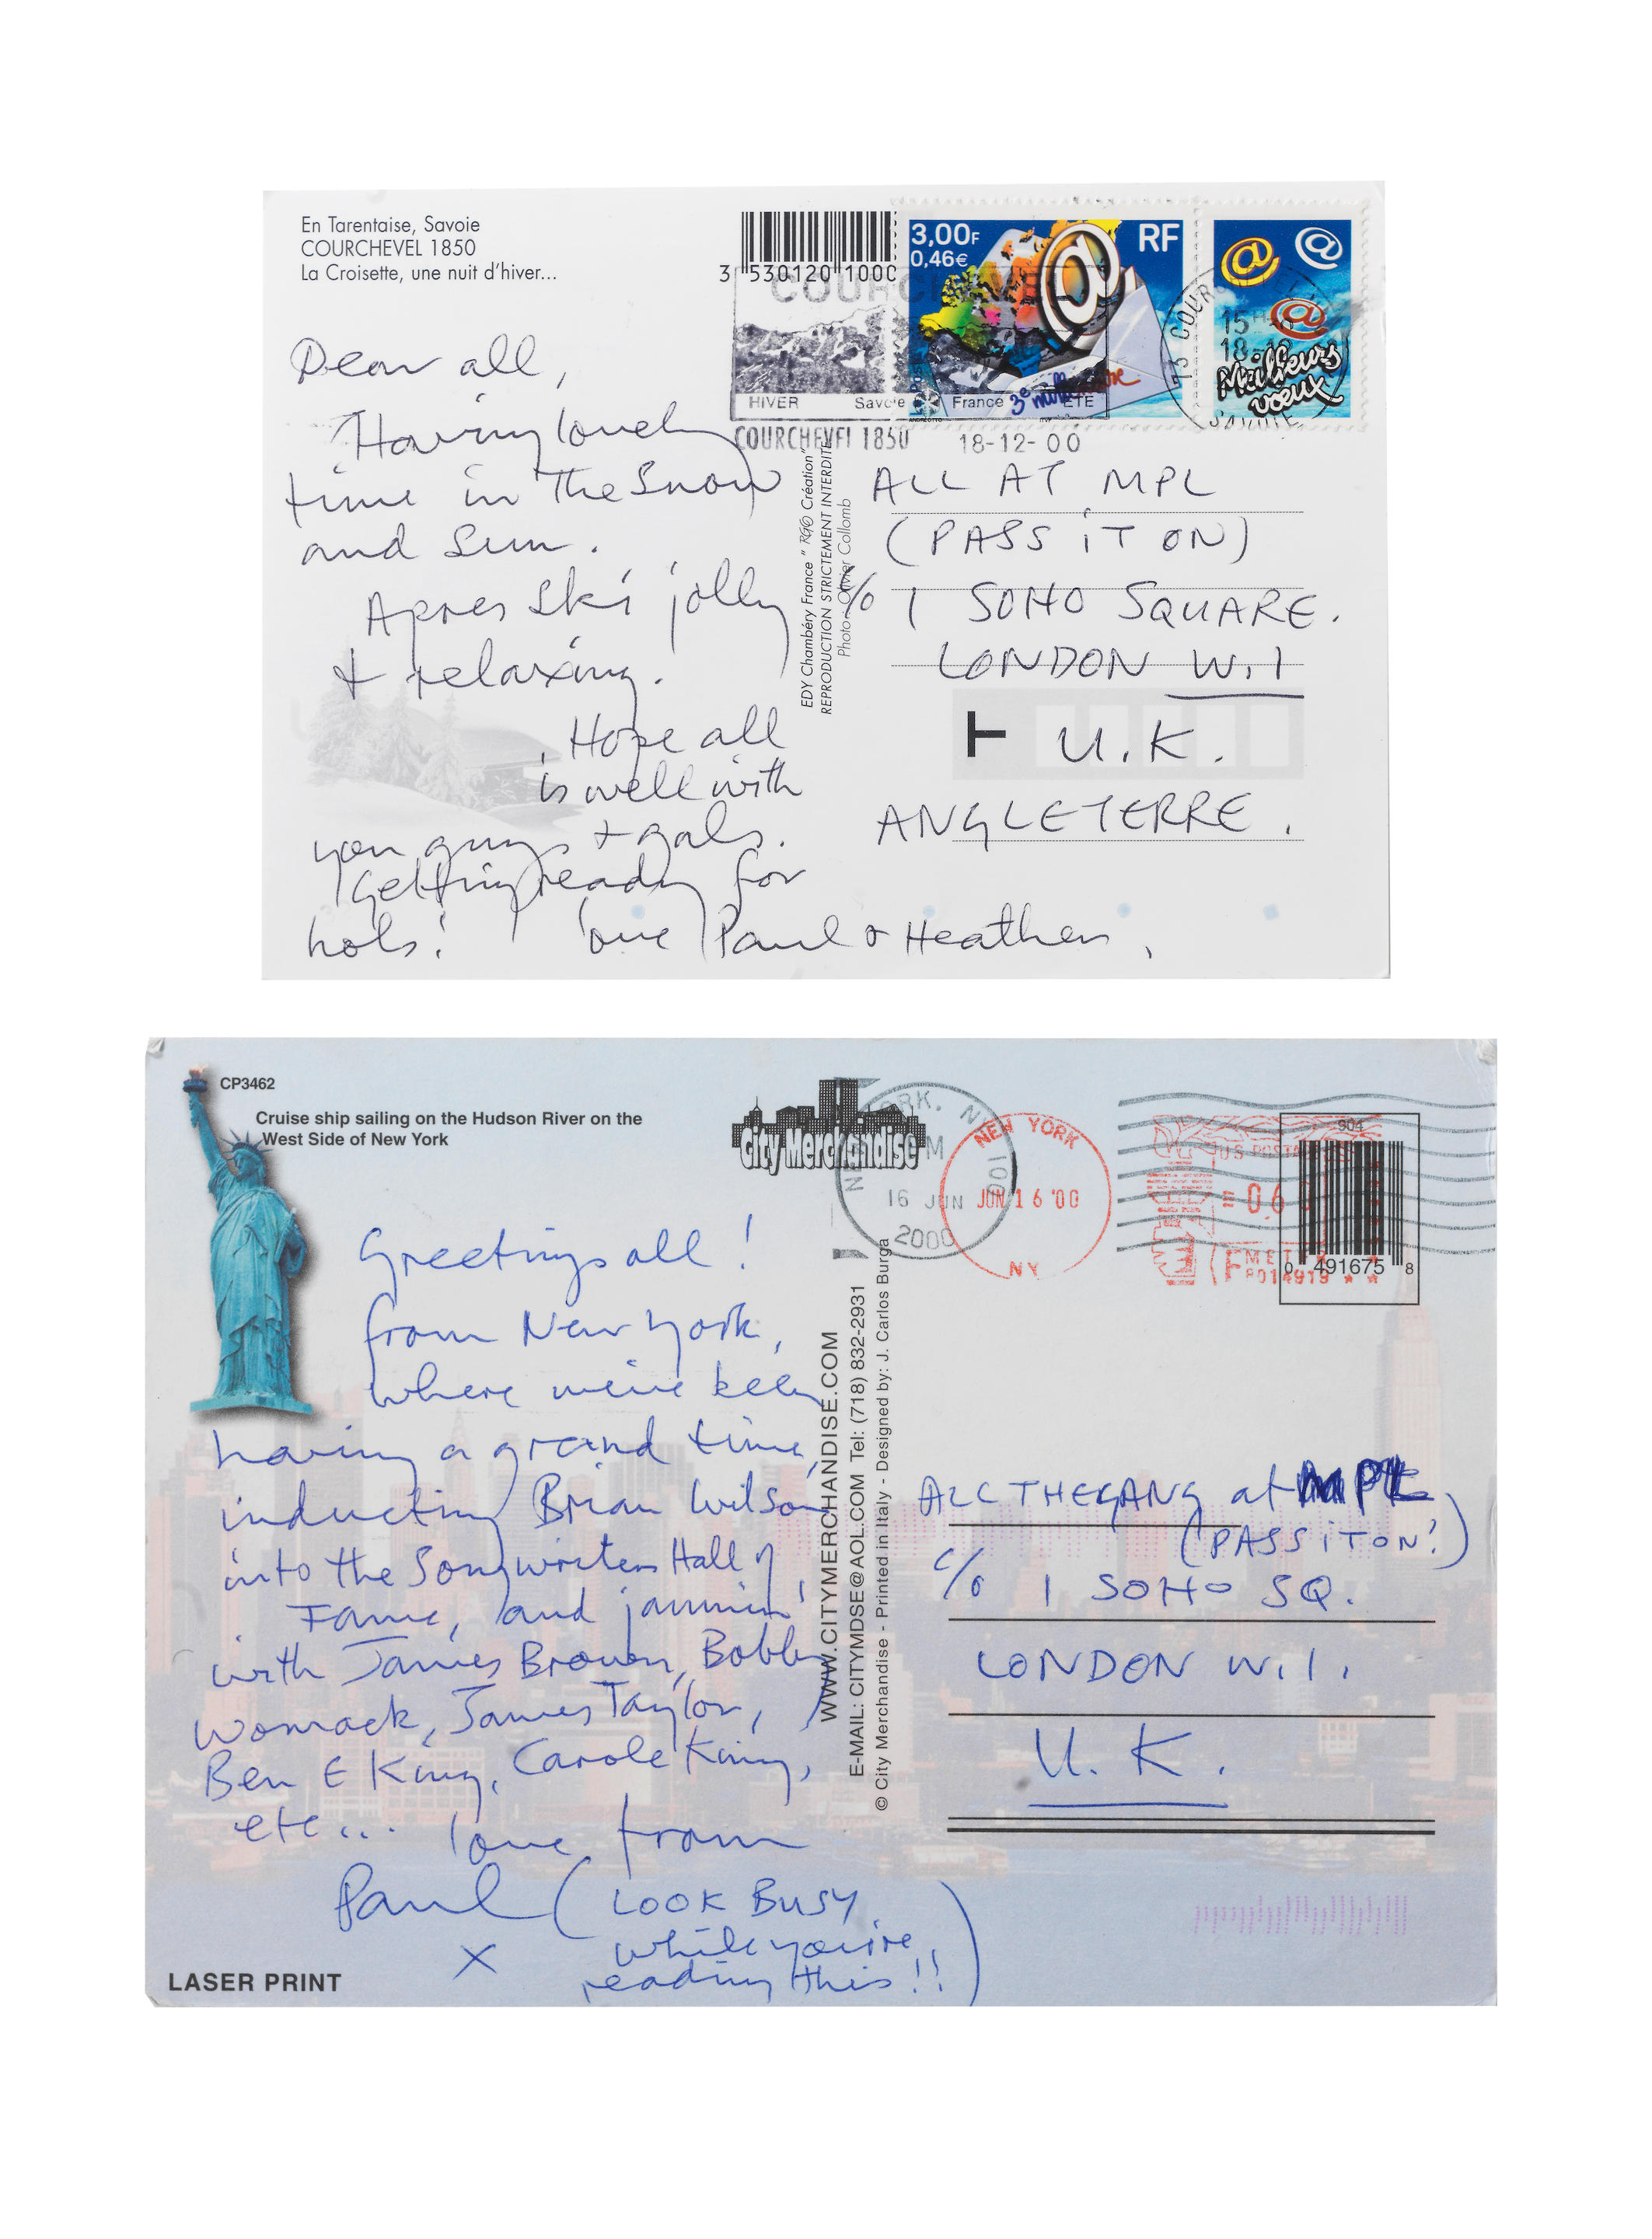 En Tarentaise, Savoie
COURCHEVEL 1850
La Croisette, une nuit d'hiver...
3 530120 1000
3,00F
0,46€
RF
Meilleurs
vœux
HIVER Savoie France ÉTÉ
COURCHEVEL 1850 18-12-00
Dear all,
Having lovely
time in The Snow
and Sun.
Apres Ski jolly
+ relaxing.
Hope all
is well with
you guys + gals.
Getting ready for
hols! love Paul & Heather,
EDY Chambéry France " RGO Création"
REPRODUCTION STRICTEMENT INTERDITE
Photo : Olivier Collomb
ALL AT MPL
(PASS iT ON)
c/o 1 SOHO SQUARE.
LONDON W.1
U.K.
ANGLETERRE.
CP3462
Cruise ship sailing on the Hudson River on the
West Side of New York
City Merchandise
16 JUN
2000
NEW YORK
JUN 16 '00
NY
904
0 491675 8
Greetings all!
from New York,
where we've been
having a grand time,
inducting Brian Wilson
into the Songwriters Hall of
Fame, and jammin'
with James Brown, Bobby
Womack, James Taylor,
Ben E King, Carole King,
etc... love from
Paul (LOOK BUSY
x while you're
reading this!!)
LASER PRINT
WWW.CITYMERCHANDISE.COM
E-MAIL: CITYMDSE@AOL.COM Tel: (718) 832-2931
© City Merchandise - Printed in Italy - Designed by: J. Carlos Burga
ALL THE GANG at MPL
(PASS iT ON!)
c/o 1 SOHO SQ.
LONDON W.1.
U.K.